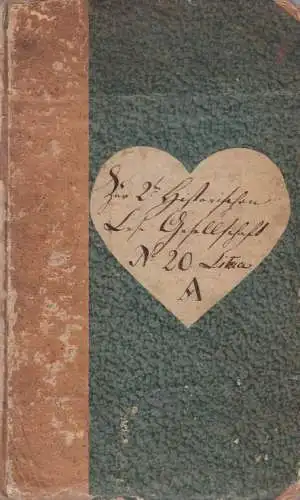 Zur 2t Historischen
Lese Gesellschaft
No 20 Littra
A